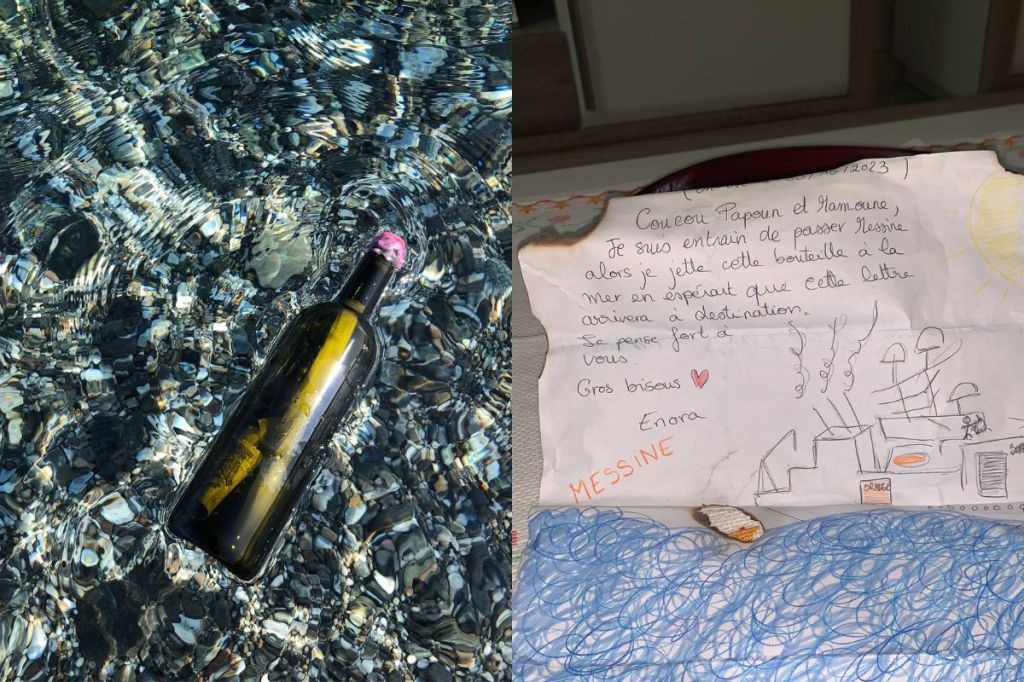 2023)
Coucou Papoun et Mamoune,
Je suis entrain de passer Messine
alors je jette cette bouteille à la
mer en espérait que cette lettre
arrivera à destination.
Je pense fort à
vous
Gros bisous
Enora
MESSINE
ORANGE